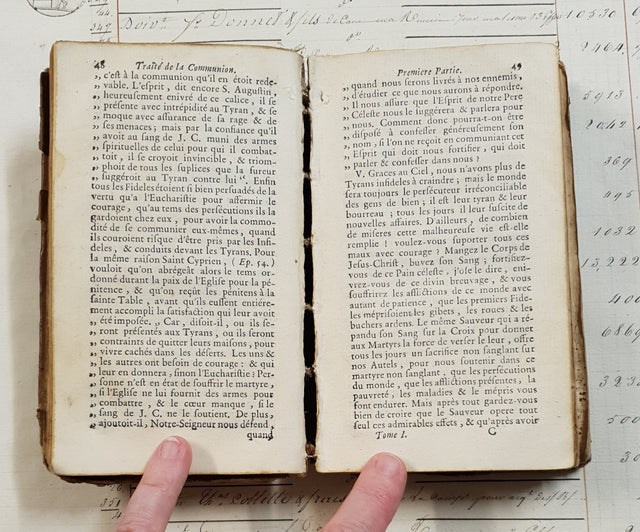 48 Traité de la Communion.
„ c'est à la communion qu'il en étoit rede-
„ vable. L'esprit, dit encore S. Augustin,
„ heureusement enivré de ce calice, il se
„ présente avec intrépidité au Tyran, & se
„ moque avec assurance de sa rage & de
„ ses menaces; mais par la confiance qu'il
„ avoit au sang de J. C. muni des armes
„ spirituelles de celui pour qui il combat-
„ toit, il se croyoit invincible, & triom-
„ phoit de tous les suplices que la fureur
„ suggéroit au Tyran contre lui ". Enfin
tous les Fideles étoient si bien persuadés de la
vertu qu'a l'Eucharistie pour affermir le
courage, qu'au tems des persécutions ils la
gardoient chez eux, pour avoir la commo-
dité de se communier eux-mêmes, quand
ils couroient risque d'être pris par les Infi-
deles, & conduits devant les Tyrans. Pour
la même raison Saint Cyprien, (Ep. 54.)
vouloit qu'on abrégeât alors le tems or-
donné durant la paix de l'Eglise pour la pé-
nitence, & qu'on reçût les pénitens à la
sainte Table, avant qu'ils eussent entière-
ment accompli la satisfaction qui leur avoit
été imposée. „ Car, disoit-il, ou ils se-
„ ront présentés aux Tyrans, ou ils seront
„ contraints de quitter leurs maisons, pour
„ vivre cachés dans les déserts. Les uns &
„ les autres ont besoin de courage: & qui
„ leur en donnera, sinon l'Eucharistie? Per-
„ sonne n'est en état de souffrir le martyre,
„ si l'Eglise ne lui fournit des armes pour
„ combattre, & le cœur manque, si le
„ sang de J. C. ne le soutient. De plus,
„ ajoutoit-il, Notre-Seigneur nous défend,
quand
Premiere Partie. 49
„ quand nous serons livrés à nos ennemis,
„ d'étudier ce que nous aurons à répondre.
„ Il nous assure que l'Esprit de notre Pere
„ Céleste nous le suggérera & parlera pour
„ nous. Comment donc pourra-t-on être
„ disposé à confesser généreusement son
„ nom, si l'on ne reçoit en communiant cet
„ Esprit qui doit nous fortifier, qui doit
„ parler & confesser dans nous?
V. Graces au Ciel, nous n'avons plus de
Tyrans infideles à craindre; mais le monde
sera toujours le persécuteur irréconciliable
des gens de bien; il est leur tyran & leur
bourreau; tous les jours il leur suscite de
nouvelles affaires. D'ailleurs, de combien
de miseres cette malheureuse vie est-elle
remplie! voulez-vous suporter tous ces
maux avec courage? Mangez le Corps de
Jesus-Christ, buvez son Sang; fortifiez-
vous de ce Pain céleste, j'ose le dire, eni-
vrez-vous de ce divin breuvage, & vous
souffrirez les afflictions de ce monde avec
autant de patience, que les premiers Fide-
les méprisoient les gibets, les roues & les
buchers ardens. Le même Sauveur qui a ré-
pandu son Sang sur la Croix pour donner
aux Martyrs la force de verser le leur, offre
tous les jours un sacrifice non sanglant sur
nos Autels, pour nous soutenir dans ce
martyre non sanglant, que les persécutions
du monde, que les afflictions présentes, la
pauvreté, les maladies & le mépris vous
font endurer. Mais après tout gardez-vous
bien de croire que le Sauveur opere tout
seul ces admirables effets, & qu'après avoir
Tome I. C